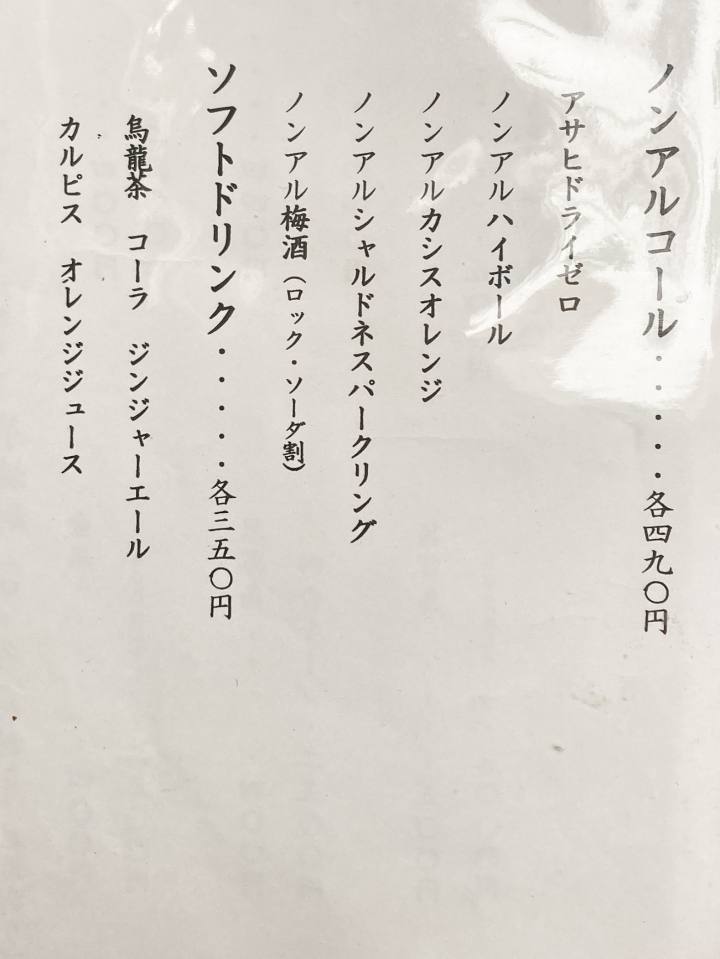 ノンアルコール・・・・・各四九〇円
アサヒドライゼロ
ノンアルハイボール
ノンアルカシスオレンジ
ノンアルシャルドネスパークリング
ノンアル梅酒（ロック・ソーダ割）
ソフトドリンク・・・・・各三五〇円
烏龍茶　コーラ　ジンジャーエール
カルピス　オレンジジュース